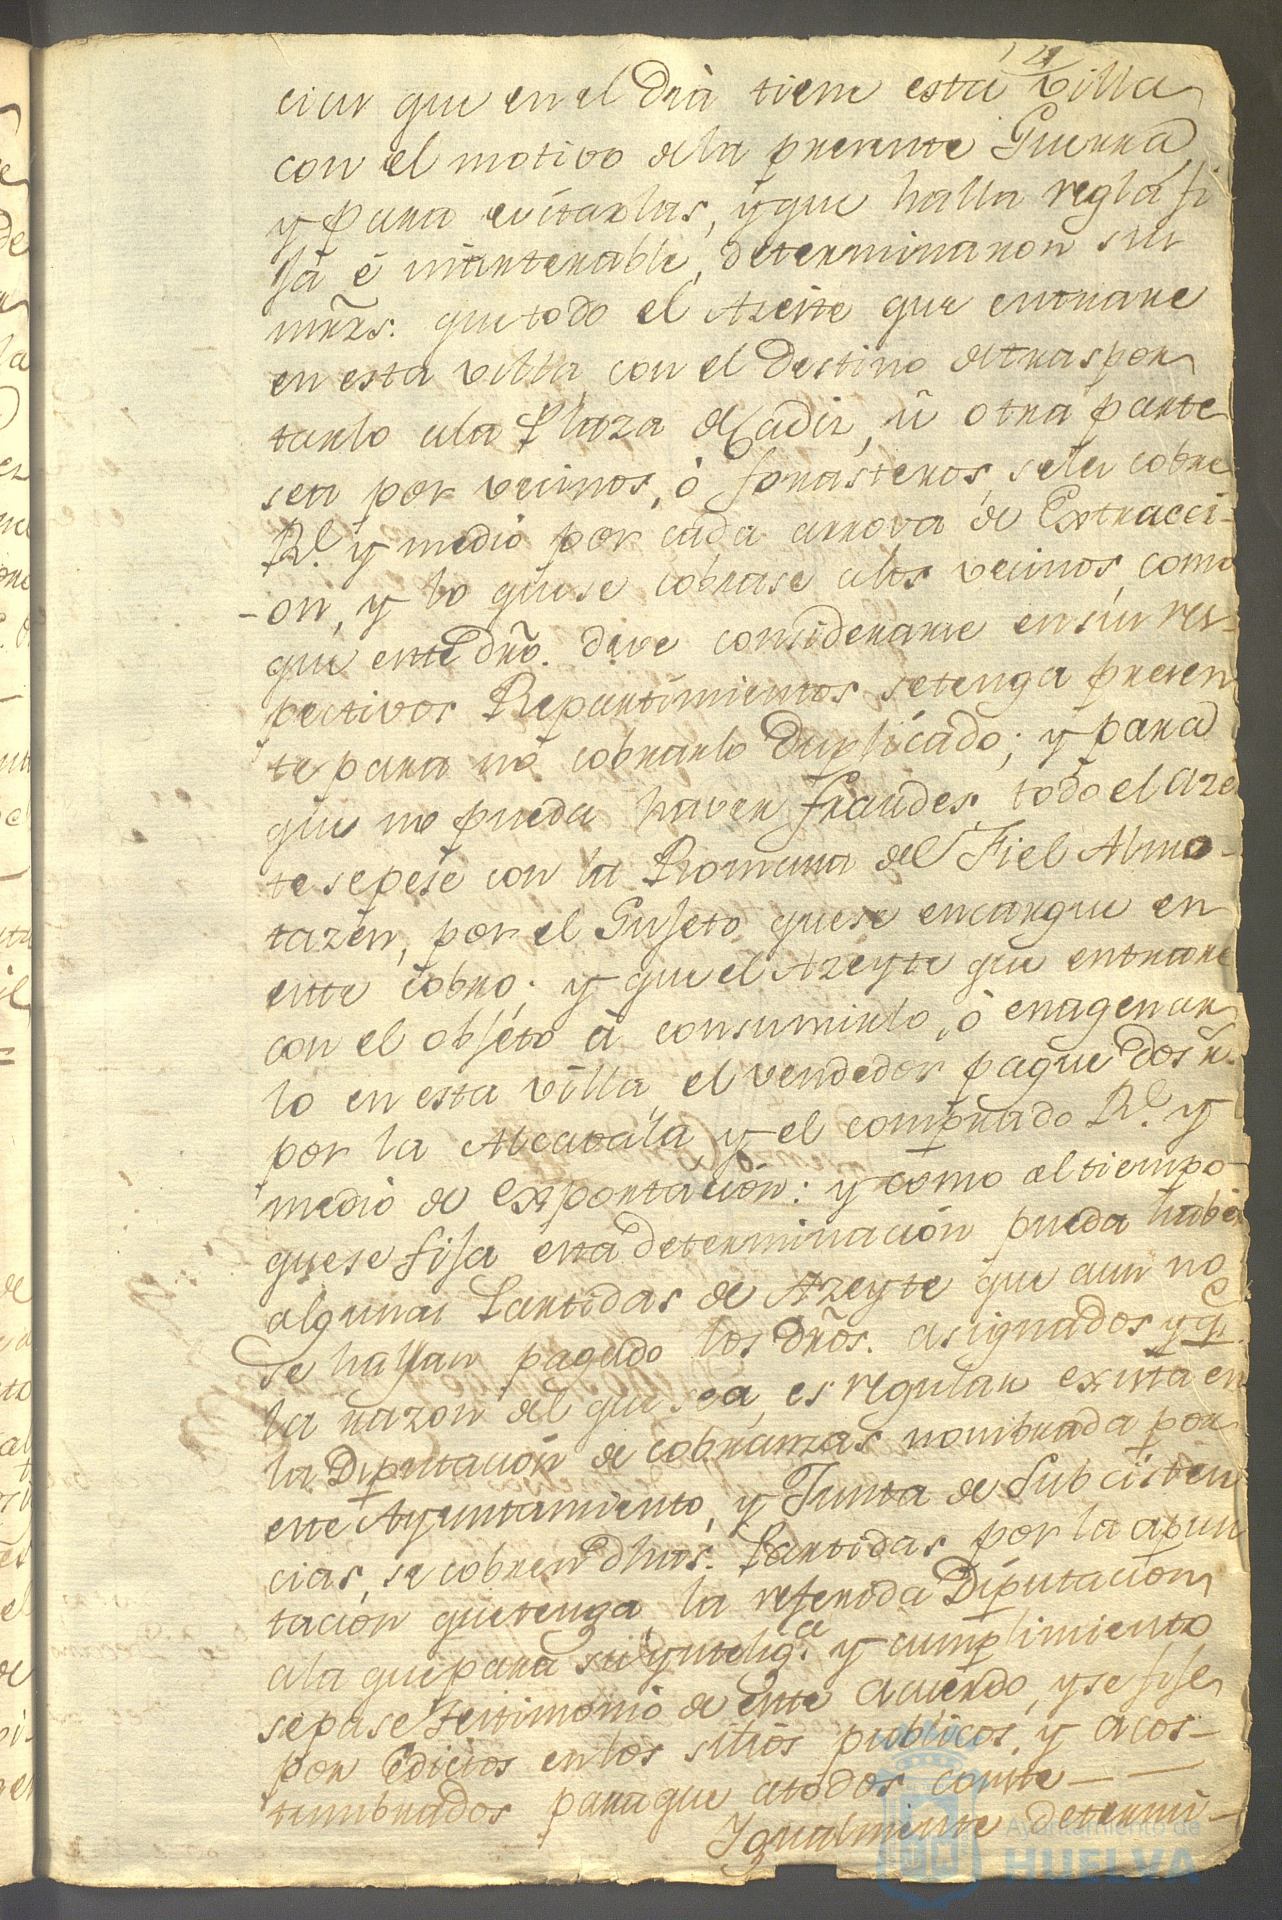 14
ciar que en el Dia tiene esta villa
con el motivo dela presente Guerra
y para evitarlas, y que halla regla fi
ja é inanterable, determinaron sus
mrzs. que todo el Azeite que entrare
en esta villa con el Destino detraspor
tarlo ala Plaza de Cadiz, ù otra parte
sea por vecinos, ò forasteros, sele cobre
Rl. y medio por cada arrova de Extracci-
-on, y lo quese cobrase alos vecinos, como
que este dro. deve considerarse en sus res-
pectivos Repartimientos setenga presen
te para no cobrarlo Duplicado; y para
que no pueda haver fraudes, todo el Aze
te sepese con la Romana del Fiel Almo-
tazen, por el Sujeto quese encargue en
este cobro; y que el Azeyte que entrare
con el objeto à consumirlo, ò enagenar
lo en esta villa el vendedor pague dos r.
por la Alcavala, y el comprado Rl. y
medio de Exportación: y como al tiempo
quese fija esta determinación pueda haber
algunas Partidas de Azeyte que aun no
se hallan pagado los dros. asignados y qe.
la razon del que sea, es regular exista en
la Diputación de cobranzas nombrada por
este Ayuntamiento, y Junta de Subcisten
cias, se cobren dhas. Partidas por la apun
tación quetenga la referida Diputación
ala que para su ynteliga. y cumplimiento
sepase testimonio de este acuerdo, y se fije
por Edictos en los sitios publicos, y acos-
tumbrados paraque atodos conste — —
Igualmente determi-
Ayuntamiento de
HUELVA